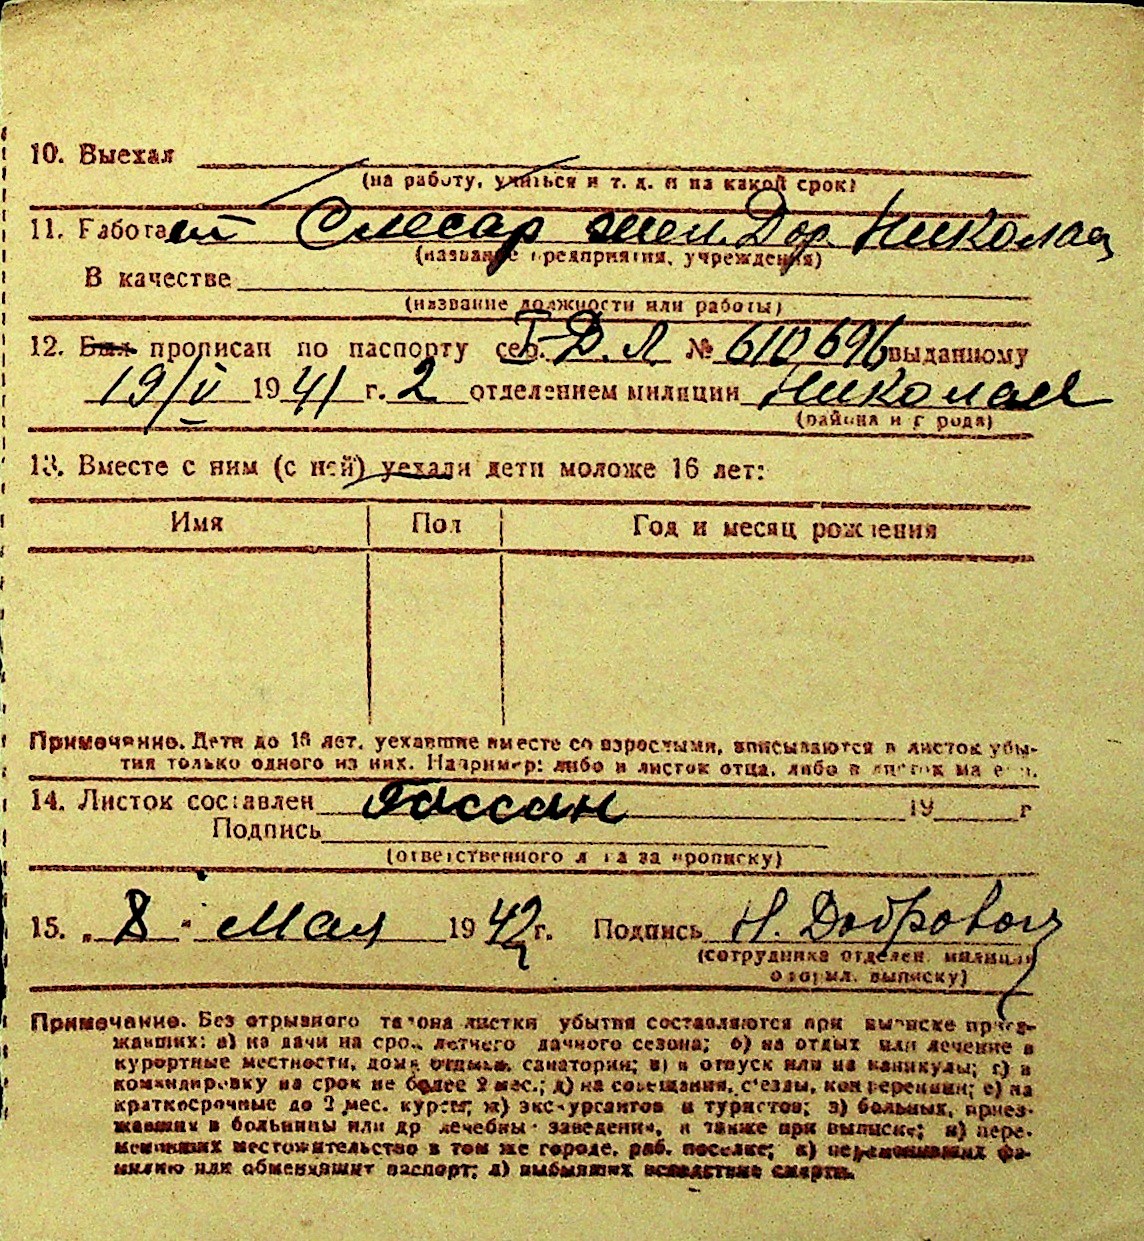 10. Выехал
(на работу, учиться и т. д. и на какой срок)
11. Работает Слесар жел. Дор. Николаев
(название предприятия, учреждения)
В качестве
(название должности или работы)
12. Был прописан по паспорту сер. I-Д.Л № 610696 выданному
19/V 1941 г. 2 отделением милиции Николаев
(района и города)
13. Вместе с ним (с ней) уехали дети моложе 16 лет:
Имя Пол Год и месяц рождения
Примечание. Дети до 16 лет, уехавшие вместе со взрослыми, вписываются в листок убы-
тия только одного из них. Например: либо в листок отца, либо в листок матери.
14. Листок составлен Гассан 19 г
Подпись
(ответственного лица за прописку)
15. „8" Мая 1942 г. Подпись Н. Доброволь
(сотрудника отделен. милиции
оформл. выписку)
Примечание. Без отрывного талона листки убытия составляются при выписке приез-
жавших: а) на дачи на срок летнего дачного сезона; б) на отдых или лечение в
курортные местности, дома отдыха, санатории; в) в отпуск или на каникулы; г) в
командировку на срок не более 2 мес.; д) на совещания, с'езды, конференции; е) на
краткосрочные до 2 мес. курсы; ж) экскурсантов и туристов; з) больных, приез-
жавших в больницы или др лечебные заведения, а также при выписке; и) пере-
менивших местожительство в том же городе, раб. поселке; к) переменивших фа-
милию или обменявших паспорт; л) выбывших вследствие смерти.